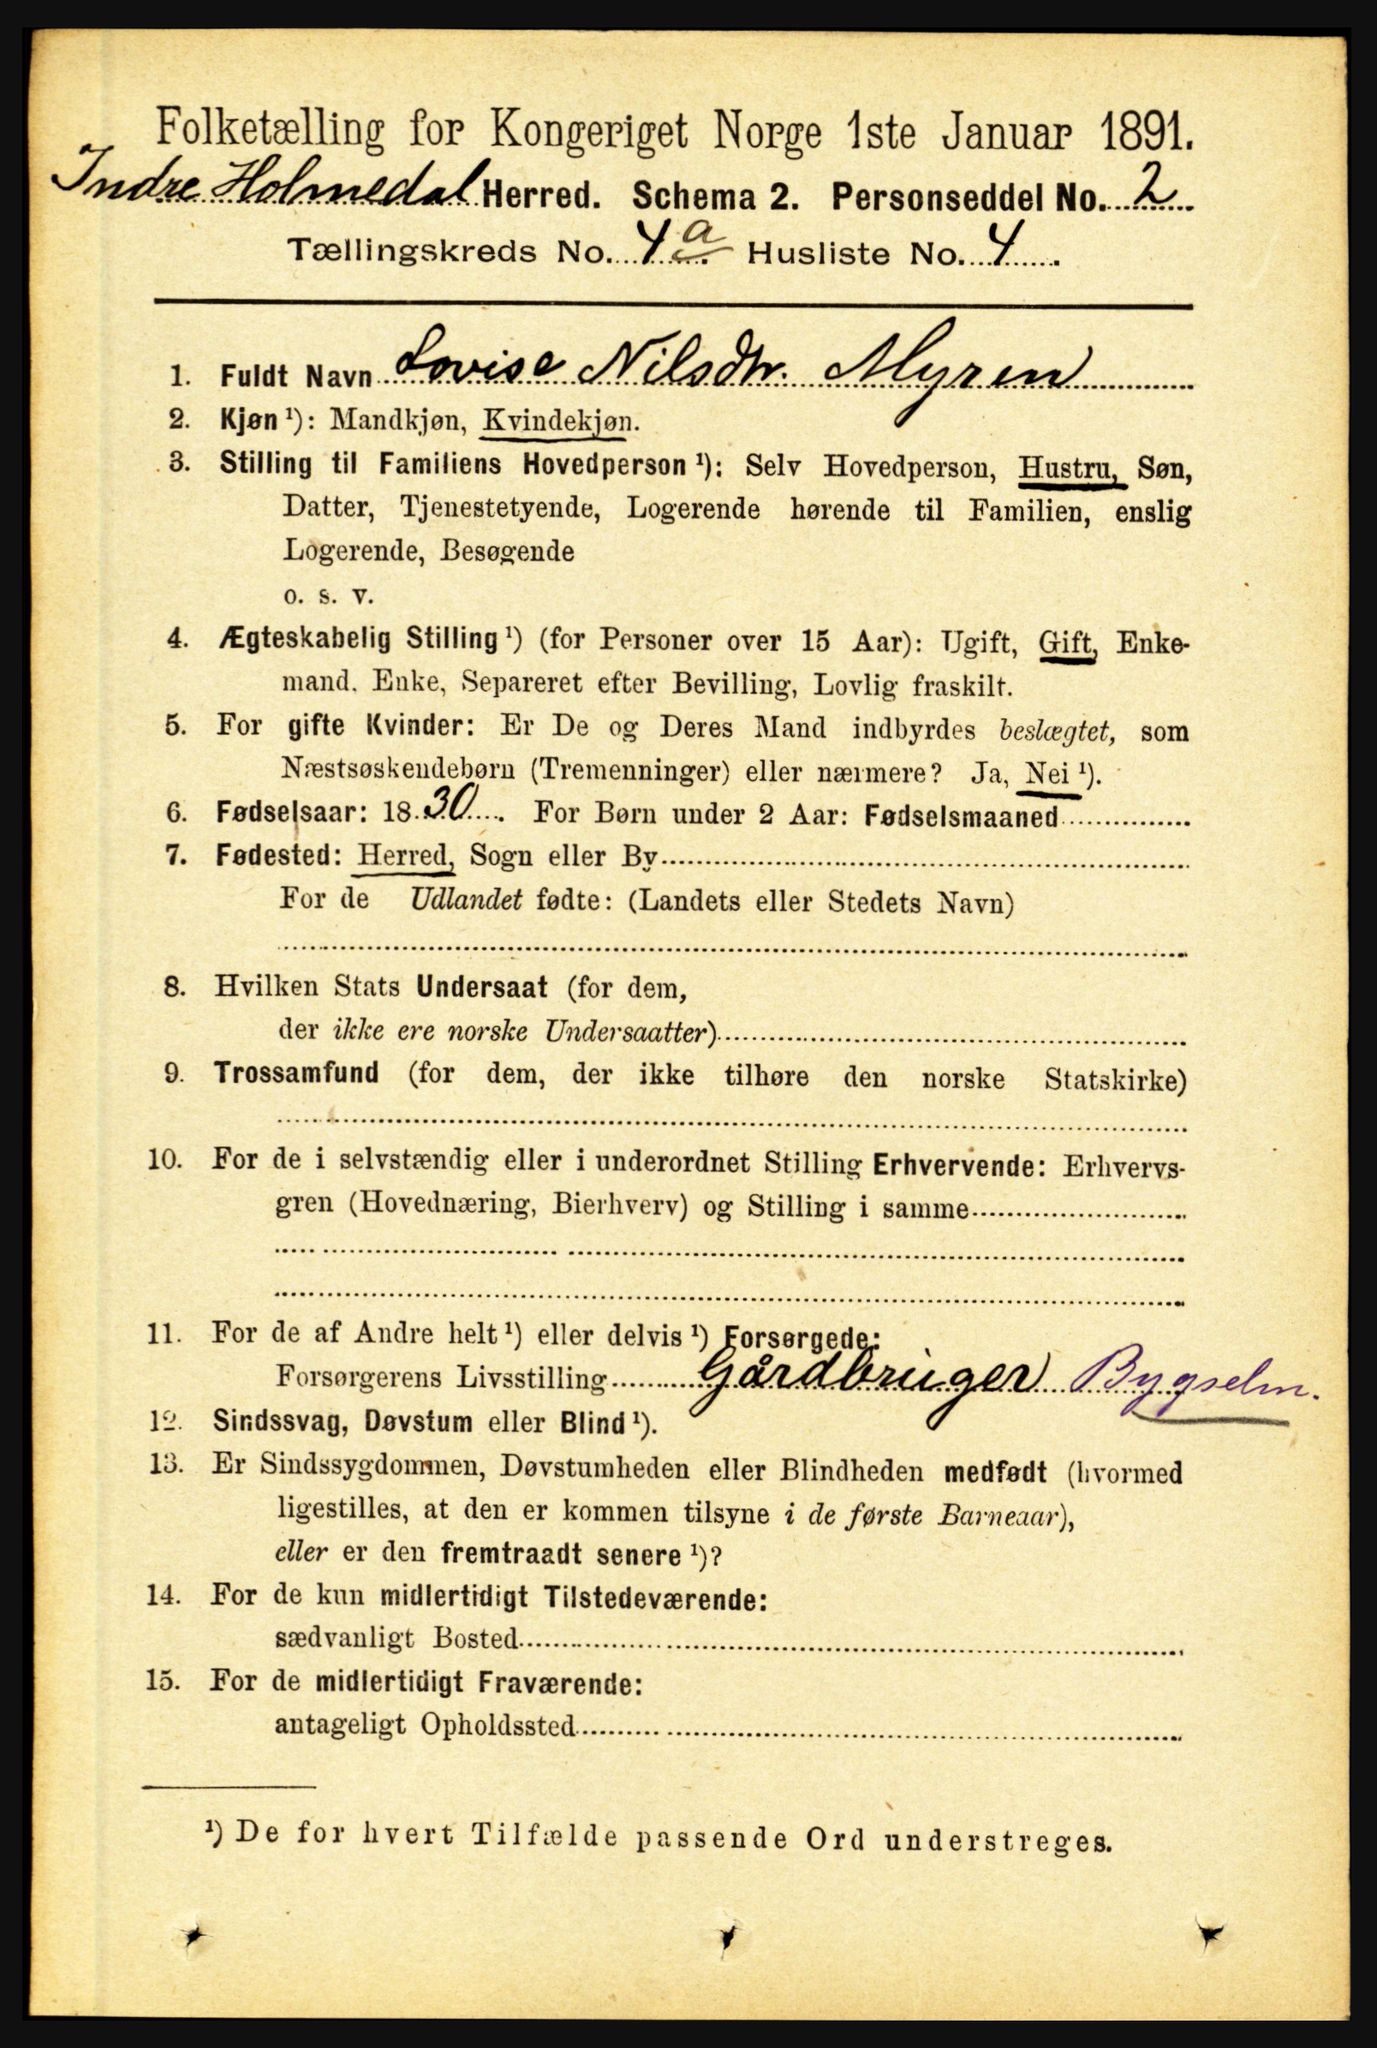 Folketælling for Kongeriget Norge 1ste Januar 1891.
Indre Holmedal Herred. Schema 2. Personseddel No. 2
Tællingskreds No. 4a Husliste No. 4
1. Fuldt Navn Lovise Nilsdtr. Myren
2. Kjøn ¹): Mandkjøn, Kvindekjøn.
3. Stilling til Familiens Hovedperson ¹): Selv Hovedperson, Hustru, Søn,
Datter, Tjenestetyende, Logerende hørende til Familien, enslig
Logerende, Besøgende
o. s. v.
4. Ægteskabelig Stilling ¹) (for Personer over 15 Aar): Ugift, Gift, Enke-
mand, Enke, Separeret efter Bevilling, Lovlig fraskilt.
5. For gifte Kvinder: Er De og Deres Mand indbyrdes beslægtet, som
Næstsøskendebørn (Tremenninger) eller nærmere? Ja, Nei ¹).
6. Fødselsaar: 1830. For Børn under 2 Aar: Fødselsmaaned
7. Fødested: Herred, Sogn eller By
For de Udlandet fødte: (Landets eller Stedets Navn)
8. Hvilken Stats Undersaat (for dem,
der ikke ere norske Undersaatter)
9. Trossamfund (for dem, der ikke tilhøre den norske Statskirke)
10. For de i selvstændig eller i underordnet Stilling Erhvervende: Erhvervs-
gren (Hovednæring, Bierhverv) og Stilling i samme
11. For de af Andre helt ¹) eller delvis ¹) Forsørgede:
Forsørgerens Livsstilling Gårdbruger Bygselm.
12. Sindssvag, Døvstum eller Blind ¹).
13. Er Sindssygdommen, Døvstumheden eller Blindheden medfødt (hvormed
ligestilles, at den er kommen tilsyne i de første Barneaar),
eller er den fremtraadt senere ¹)?
14. For de kun midlertidigt Tilstedeværende:
sædvanligt Bosted
15. For de midlertidigt Fraværende:
antageligt Opholdssted
¹) De for hvert Tilfælde passende Ord understreges.